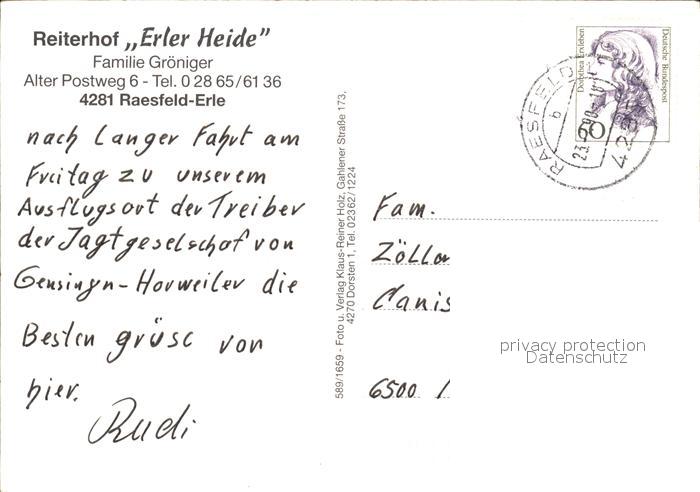 Reiterhof „Erler Heide”
Familie Gröniger
Alter Postweg 6 - Tel. 0 28 65/61 36
4281 Raesfeld-Erle
nach langer Fahrt am
Freitag zu unserem
Ausflugsort der Treiber
der Jagtgeselschaf von
Gensingn-Horweiler die
Besten grüse von
hier.
Rudi
589/1659 - Foto u. Verlag Klaus-Reiner Holz, Gahlener Straße 173,
4270 Dorsten 1, Tel. 02362/1224
Dorothea Erxleben
Deutsche Bundespost
60
RAESFELD
b
4281
Fam.
Zöll
Canis
6500
privacy protection
Datenschutz